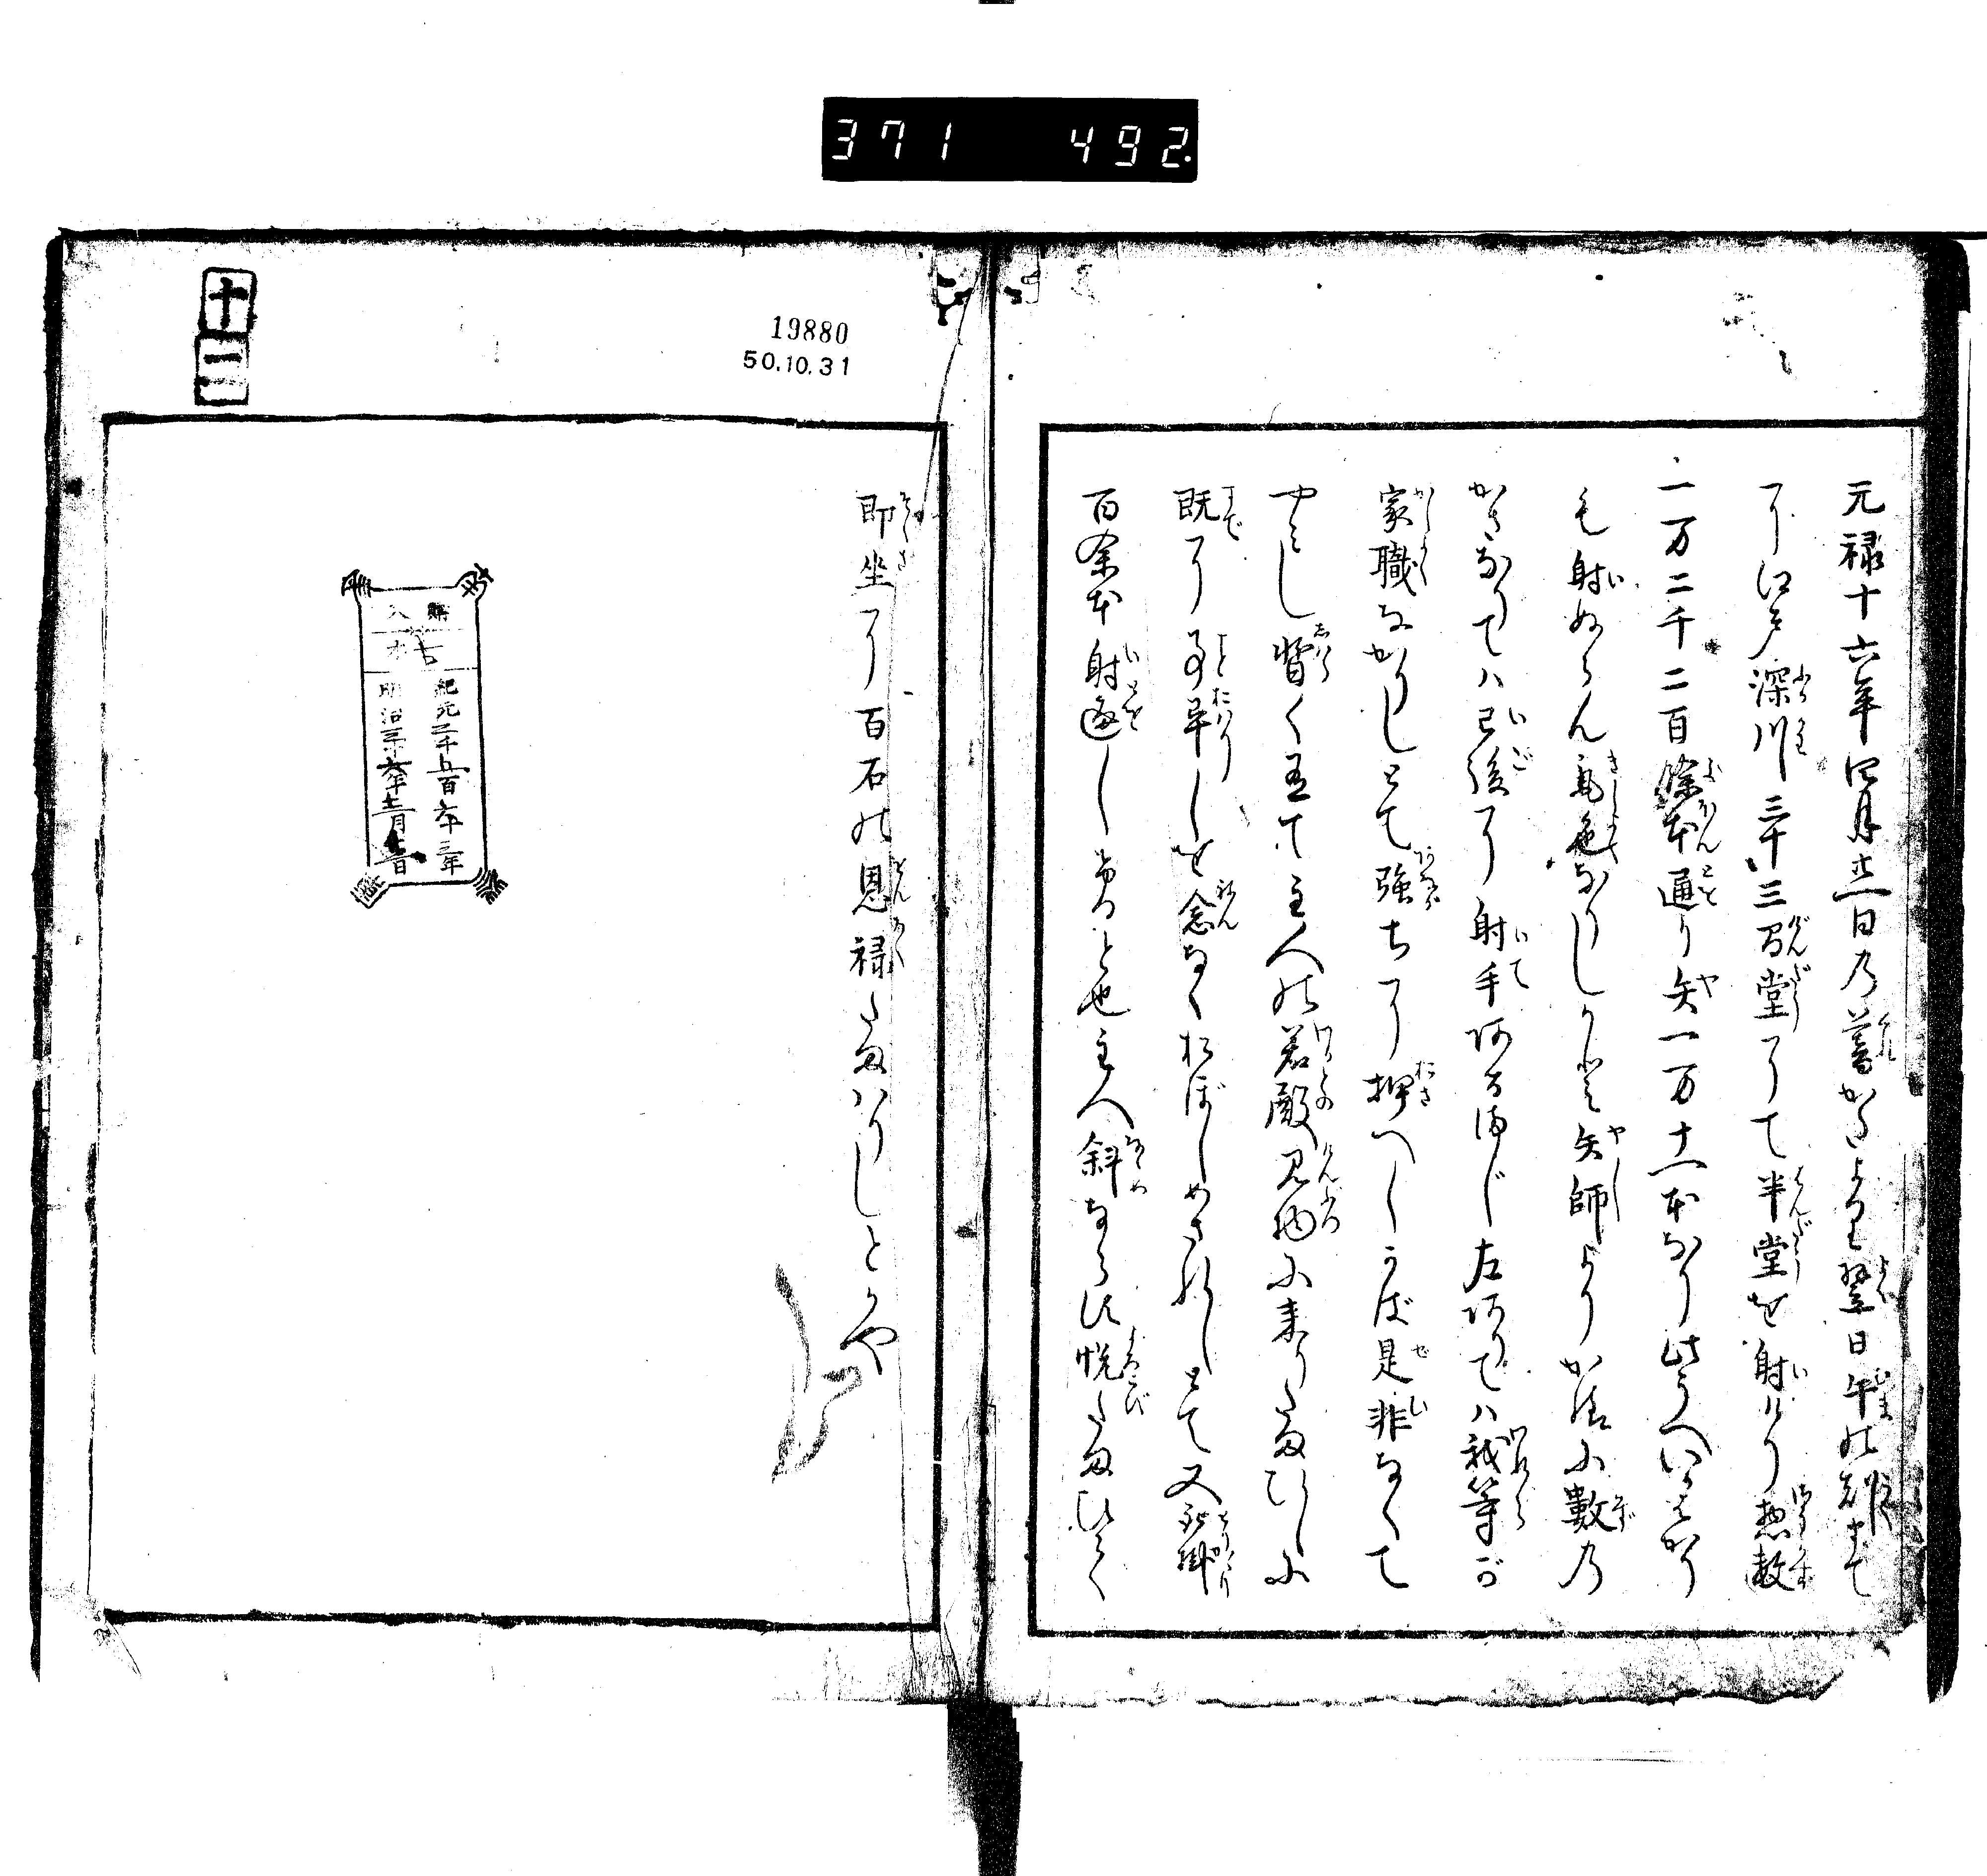 371 492.
元禄十六年四月廿一日乃暮かたより翌日午の刻まて
に江戸深川三十三間堂にて半堂を射けり惣数
一万二千二百餘本通り矢一万十一本なり此うへいくばかり
も射ぬらん氣色なりしかども矢師よりかほに數乃
かさなりてハ已後に射手あるまじ左ありてハ我等が
家職なかりしとて強ちに押へしかば是非なくて
やみし暫く有て主人の若殿見物に来りたまひしに
既に事畢しを念なくおぼしめされしとて又取掛
百余本射通しけるとや主人斜ならず悦たまひて
即坐に百石の恩禄たまハりしとかや
十二
19880
50.10.31
購入
古
紀元二千五百六十三年
明治三十六年十二月